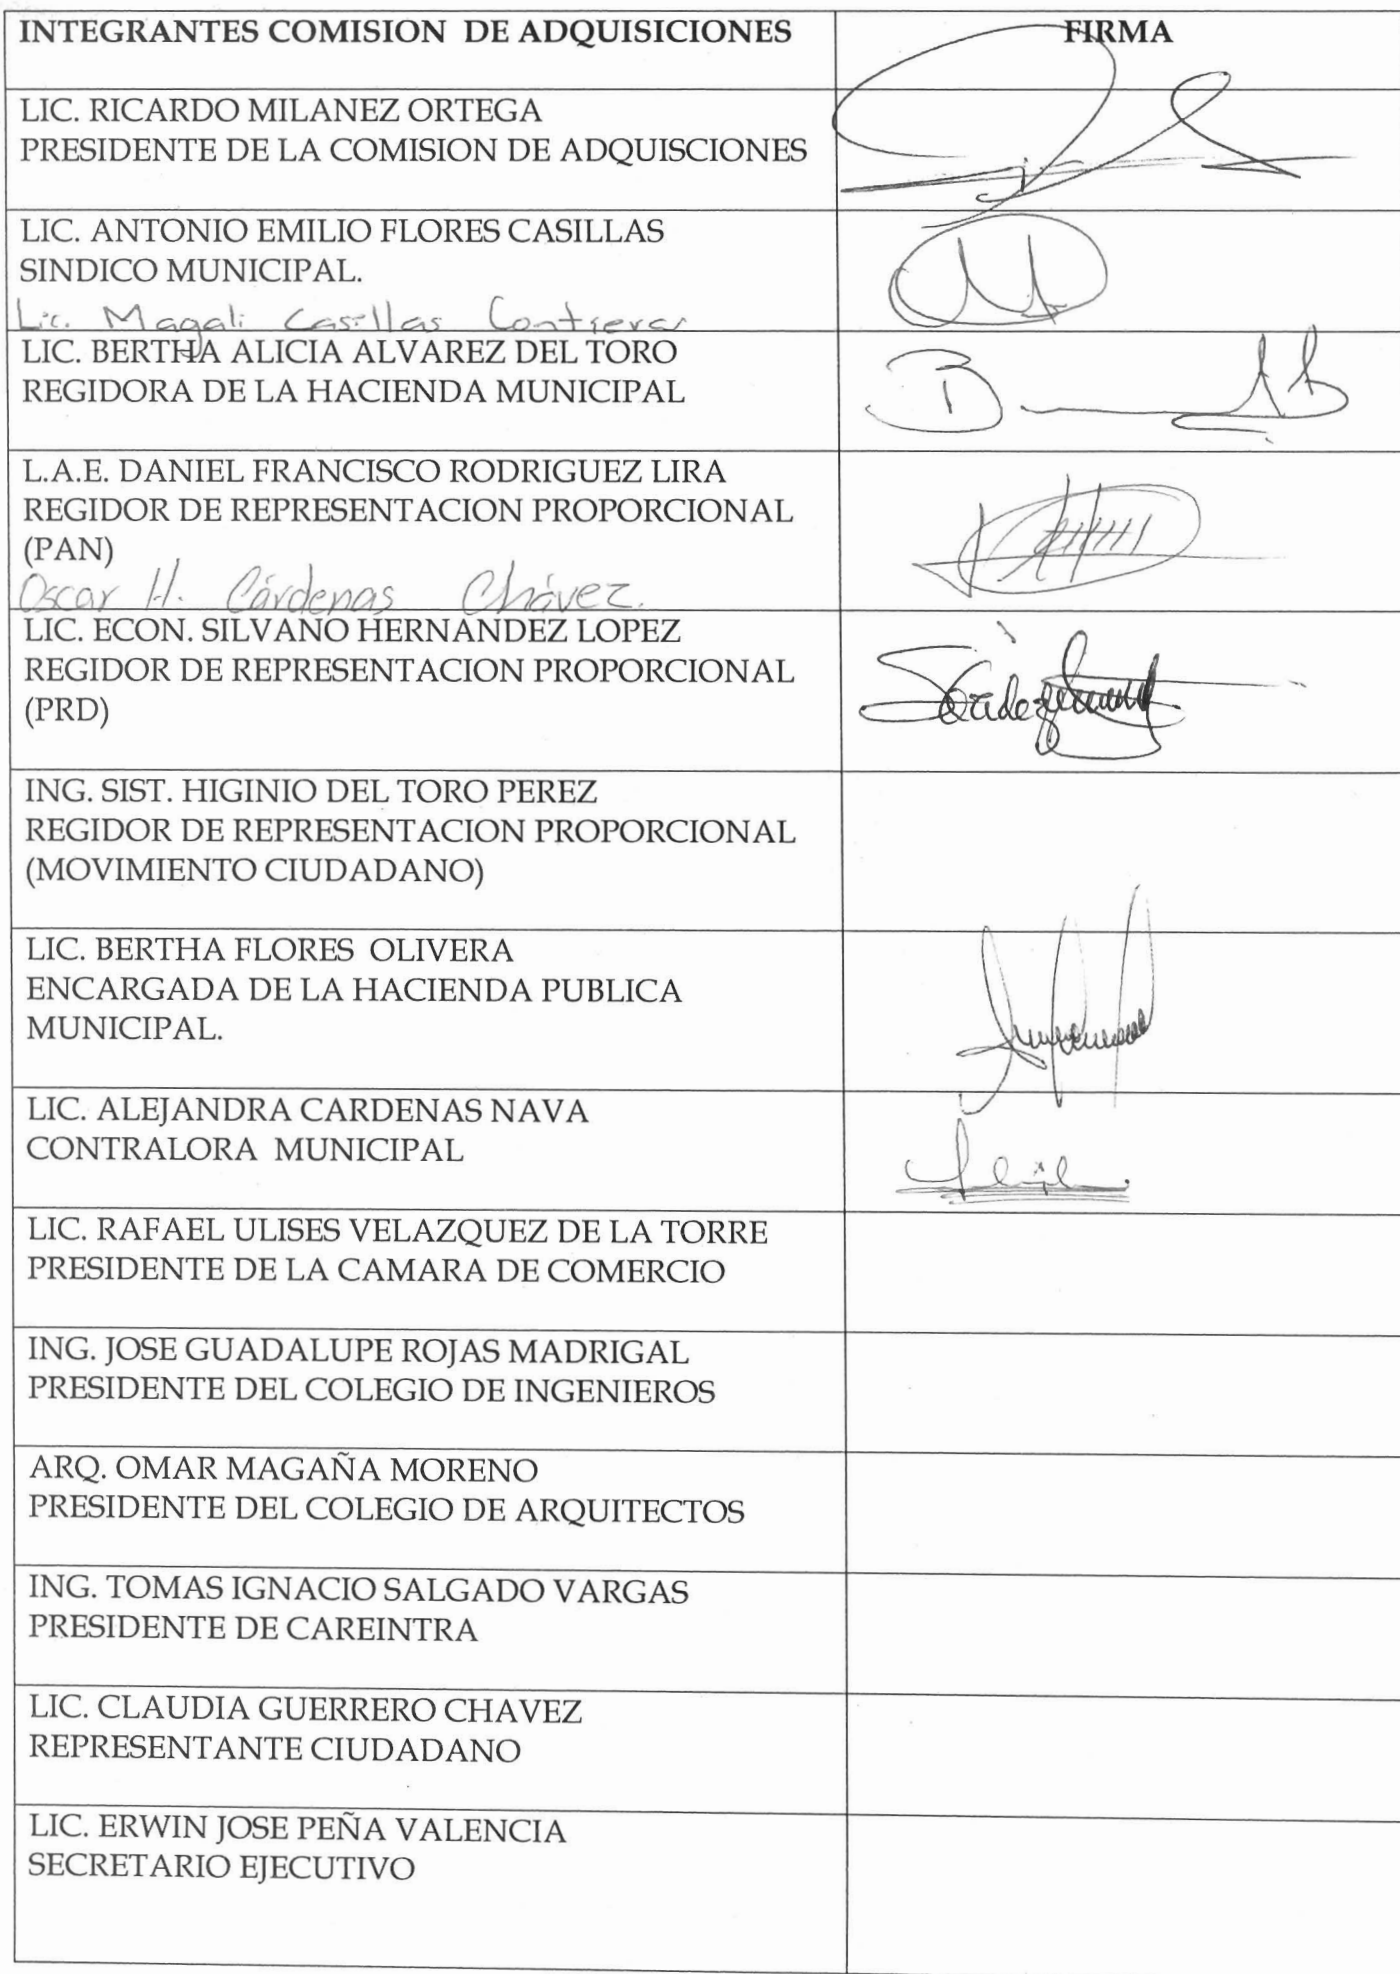 INTEGRANTES COMISION DE ADQUISICIONES FIRMA
LIC. RICARDO MILANEZ ORTEGA
PRESIDENTE DE LA COMISION DE ADQUISCIONES
LIC. ANTONIO EMILIO FLORES CASILLAS
SINDICO MUNICIPAL.
Lic. Magali Casillas Contreras
LIC. BERTHA ALICIA ALVAREZ DEL TORO
REGIDORA DE LA HACIENDA MUNICIPAL
L.A.E. DANIEL FRANCISCO RODRIGUEZ LIRA
REGIDOR DE REPRESENTACION PROPORCIONAL
(PAN)
Oscar H. Cárdenas Chávez.
LIC. ECON. SILVANO HERNANDEZ LOPEZ
REGIDOR DE REPRESENTACION PROPORCIONAL
(PRD)
ING. SIST. HIGINIO DEL TORO PEREZ
REGIDOR DE REPRESENTACION PROPORCIONAL
(MOVIMIENTO CIUDADANO)
LIC. BERTHA FLORES OLIVERA
ENCARGADA DE LA HACIENDA PUBLICA
MUNICIPAL.
LIC. ALEJANDRA CARDENAS NAVA
CONTRALORA MUNICIPAL
LIC. RAFAEL ULISES VELAZQUEZ DE LA TORRE
PRESIDENTE DE LA CAMARA DE COMERCIO
ING. JOSE GUADALUPE ROJAS MADRIGAL
PRESIDENTE DEL COLEGIO DE INGENIEROS
ARQ. OMAR MAGAÑA MORENO
PRESIDENTE DEL COLEGIO DE ARQUITECTOS
ING. TOMAS IGNACIO SALGADO VARGAS
PRESIDENTE DE CAREINTRA
LIC. CLAUDIA GUERRERO CHAVEZ
REPRESENTANTE CIUDADANO
LIC. ERWIN JOSE PEÑA VALENCIA
SECRETARIO EJECUTIVO